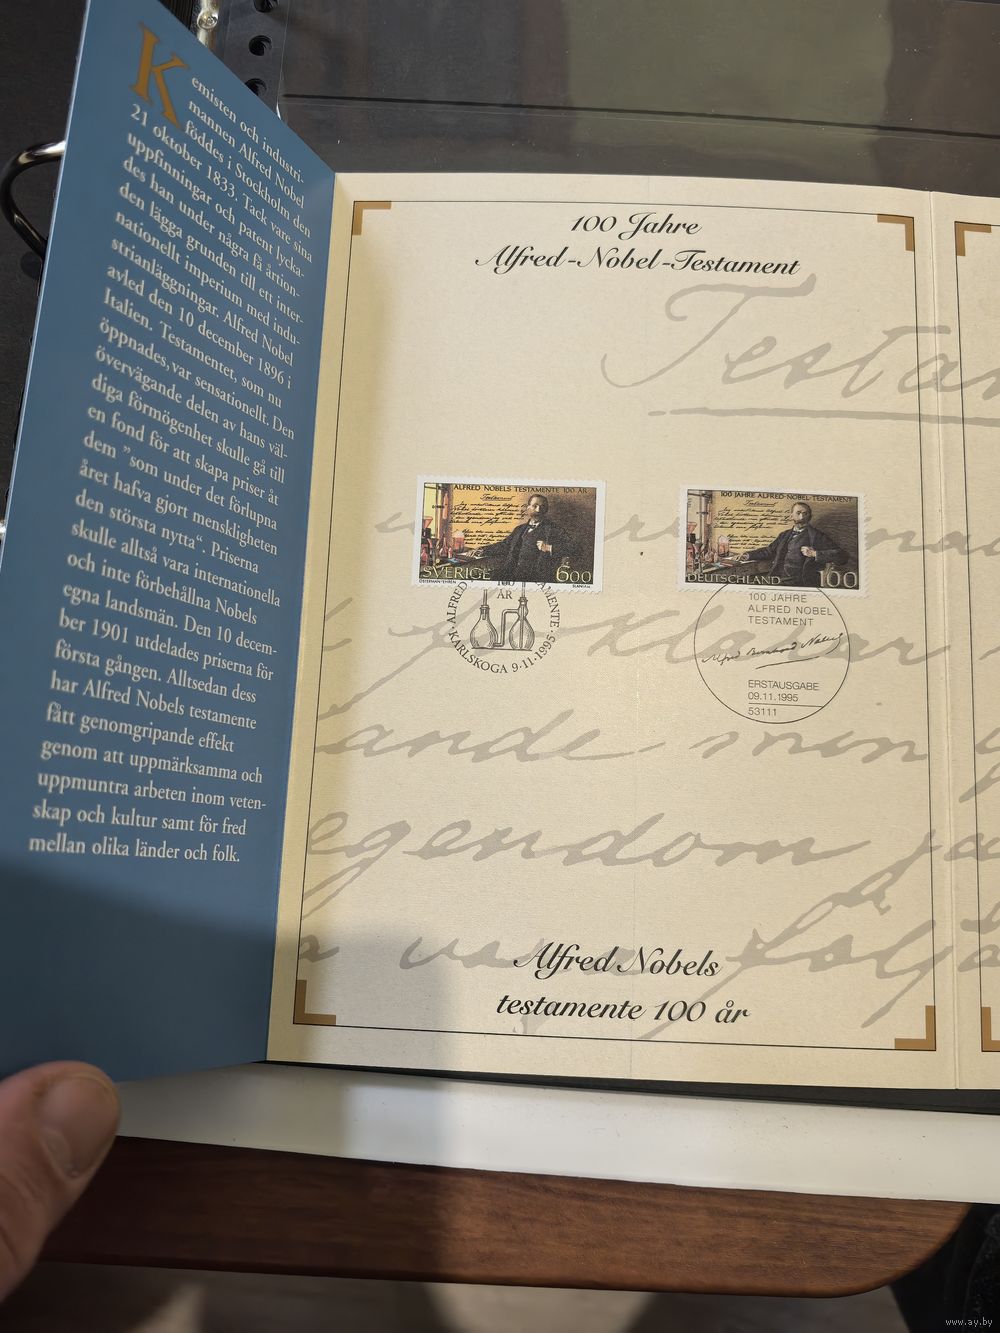 Kemisten och industri-
mannen Alfred Nobel
föddes i Stockholm den
21 oktober 1833. Tack vare sina
uppfinningar och patent lycka-
des han under några få årtion-
den lägga grunden till ett inter-
nationellt imperium med indu-
strianläggningar. Alfred Nobel
avled den 10 december 1896 i
Italien. Testamentet, som nu
öppnades, var sensationellt. Den
övervägande delen av hans väl-
diga förmögenhet skulle gå till
en fond för att skapa priser åt
dem "som under det förlupna
året hafva gjort menskligheten
den största nytta". Priserna
skulle alltså vara internationella
och inte förbehållna Nobels
egna landsmän. Den 10 decem-
ber 1901 utdelades priserna för
första gången. Alltsedan dess
har Alfred Nobels testamente
fått genomgripande effekt
genom att uppmärksamma och
uppmuntra arbeten inom veten-
skap och kultur samt för fred
mellan olika länder och folk.
100 Jahre
Alfred-Nobel-Testament
Testam
ALFRED NOBELS TESTAMENTE 100 ÅR
Testament
SVERIGE 600
ALFRED TESTAMENTE
100
ÅR
KARLSKOGA 9.11.1995
100 JAHRE ALFRED-NOBEL-TESTAMENT
Testament
DEUTSCHLAND 100
100 JAHRE
ALFRED NOBEL
TESTAMENT
Alfred Bernhard Nobel
ERSTAUSGABE
09.11.1995
53111
förklarar
ande min
egendom
följa
Alfred Nobels
testamente 100 år
www.ay.by